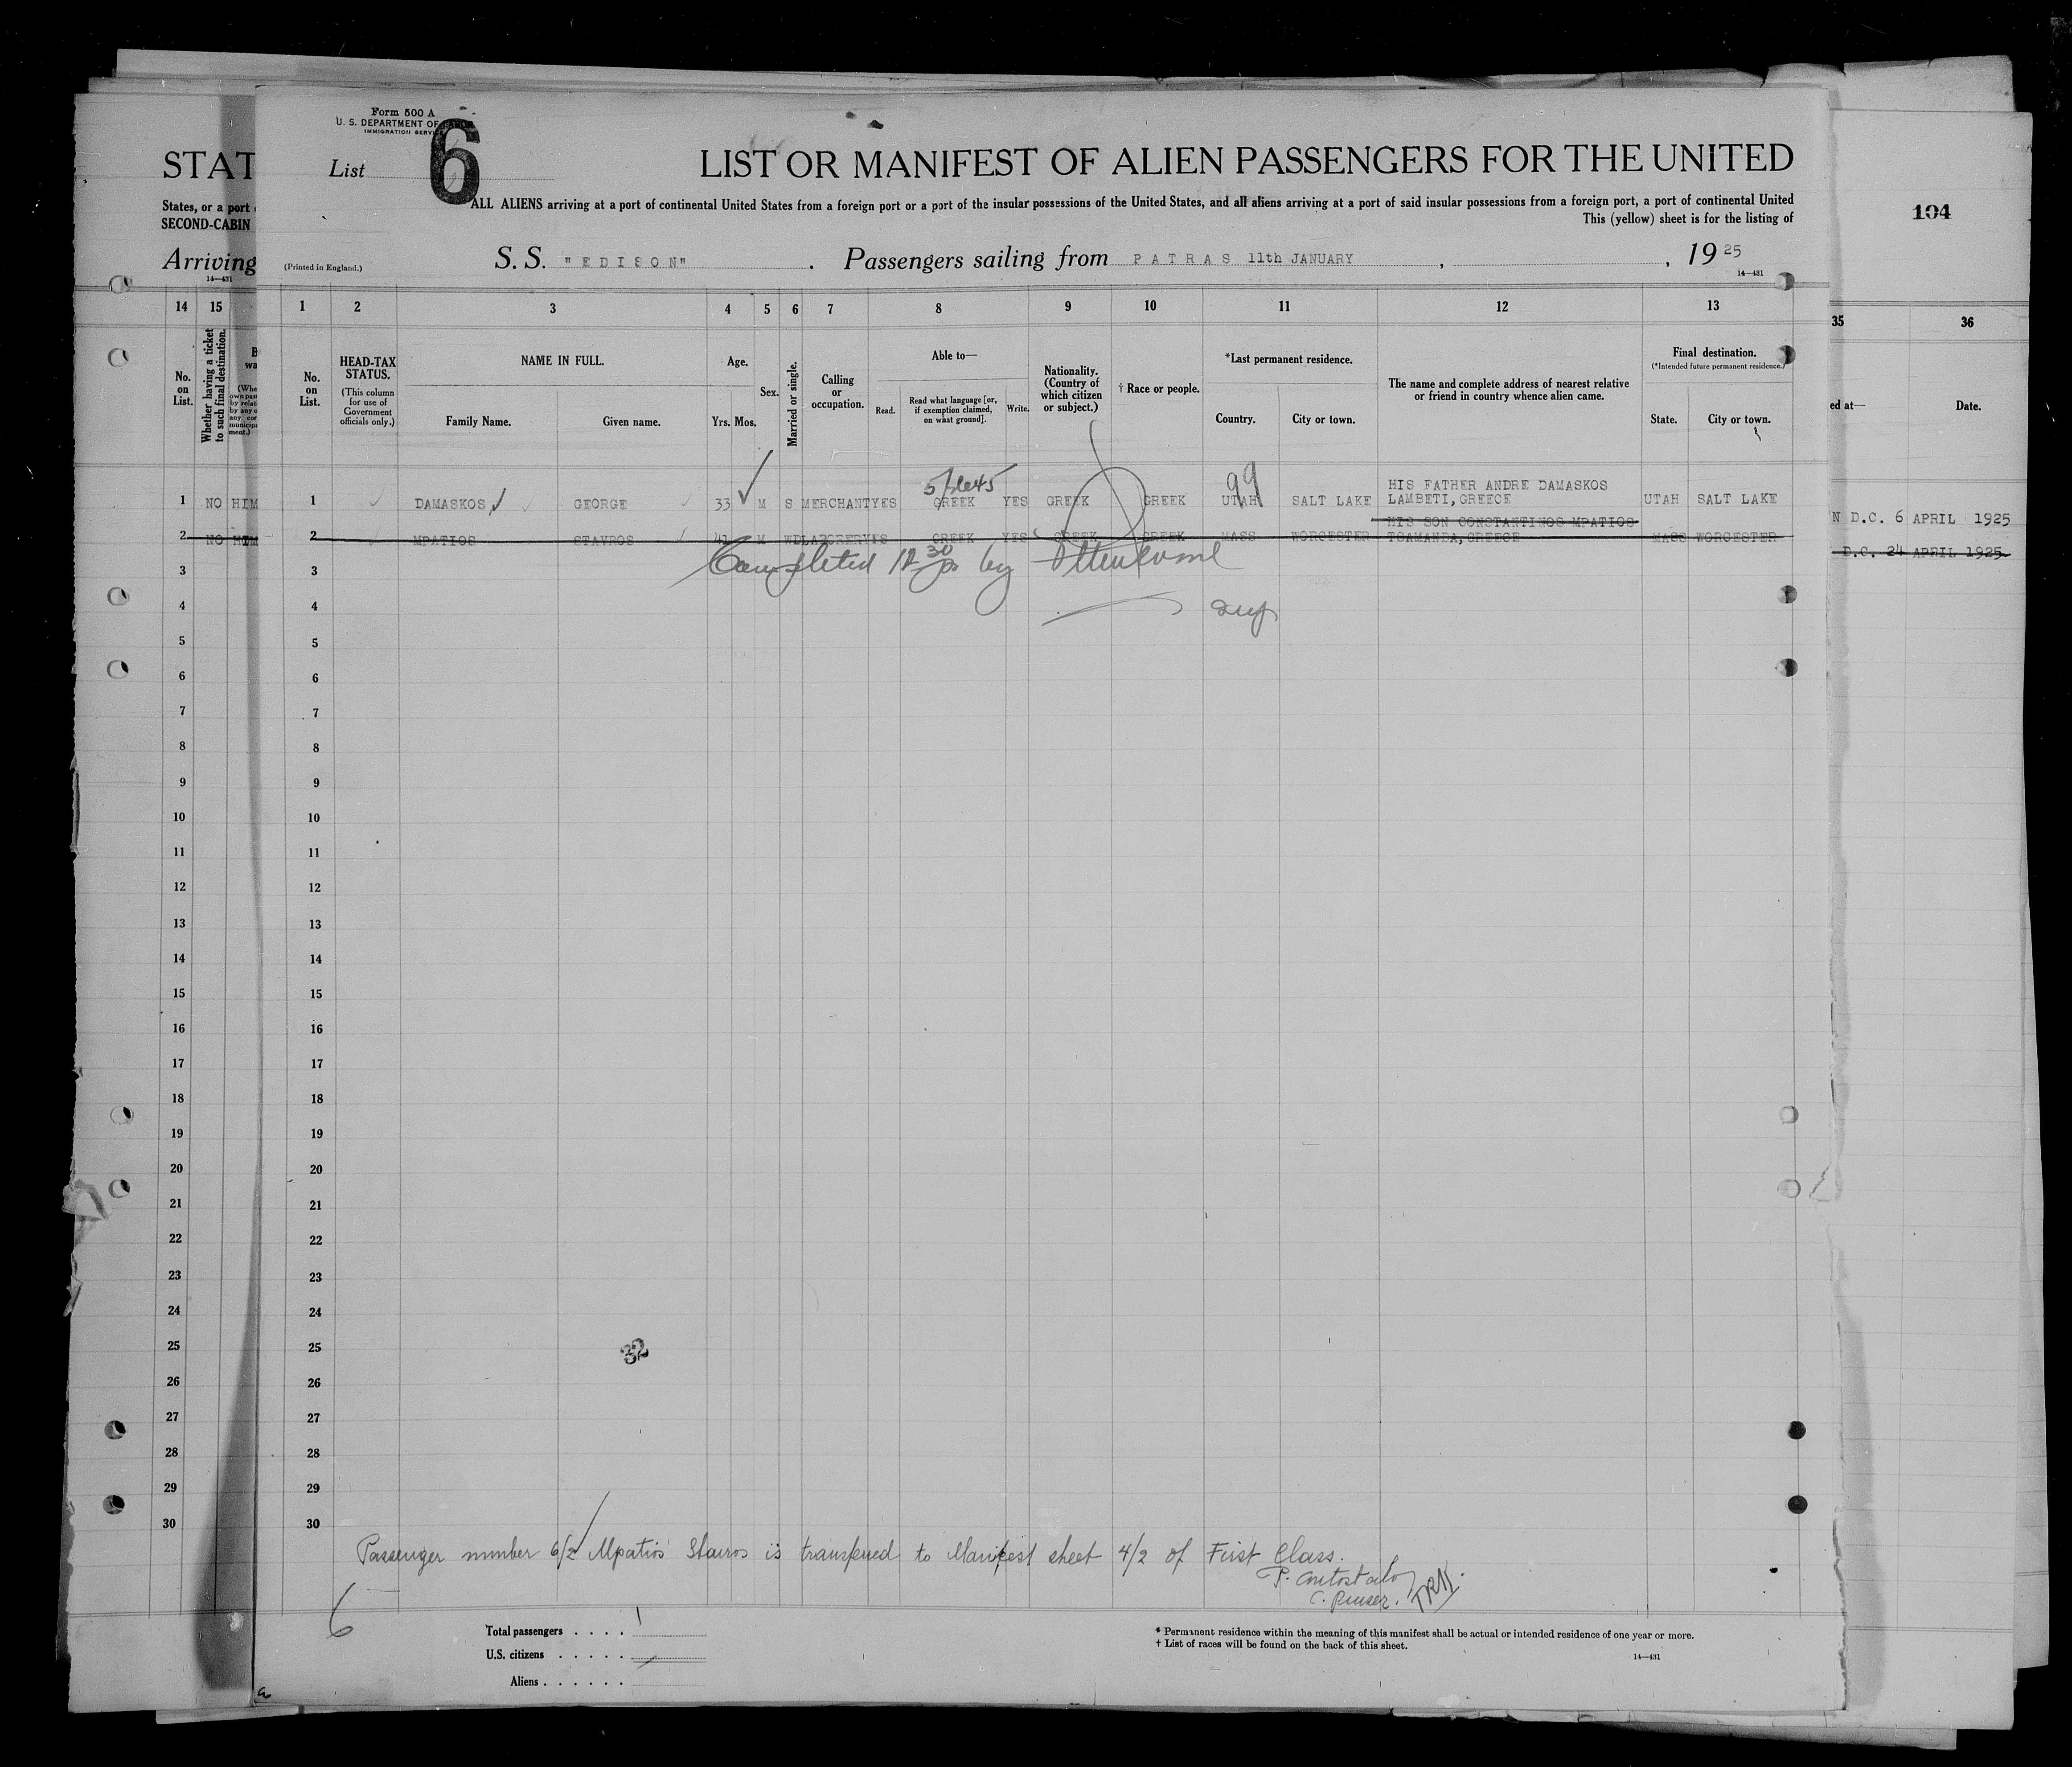 Form 500 A
U. S. DEPARTMENT OF
IMMIGRATION SERVICE
List 6
LIST OR MANIFEST OF ALIEN PASSENGERS FOR THE UNITED
ALL ALIENS arriving at a port of continental United States from a foreign port or a port of the insular possessions of the United States, and all aliens arriving at a port of said insular possessions from a foreign port, a port of continental United
This (yellow) sheet is for the listing of
(Printed in England.)
S. S. "EDISON". Passengers sailing from PATRAS 11th JANUARY, , 1925
14—431
STAT
States, or a port
SECOND-CABIN
Arriving
14—431
104
14 15 1 2 3 4 5 6 7 8 9 10 11 12 13 35 36
No. on List.
Whether having a ticket to such final destination.
No. on List.
HEAD-TAX STATUS.
(This column for use of Government officials only.)
NAME IN FULL.
Family Name. Given name.
Age.
Yrs. Mos.
Sex.
Married or single.
Calling or occupation.
Able to—
Read. Read what language [or, if exemption claimed, on what ground]. Write.
Nationality. (Country of which citizen or subject.)
† Race or people.
*Last permanent residence.
Country. City or town.
The name and complete address of nearest relative or friend in country whence alien came.
Final destination.
(*Intended future permanent residence.)
State. City or town.
ed at— Date.
99
HIS FATHER ANDRE DAMASKOS
1 NO HIM 1 DAMASKOS GEORGE 33 M S MERCHANT YES GREEK YES GREEK GREEK UTAH SALT LAKE LAMBETI,GREECE UTAH SALT LAKE
N D.C. 6 APRIL 1925
HIS SON CONSTANTINOS MPATIOS
2 NO HIM 2 MPATIOS STAVROS 41 M WD LABORER YES GREEK YES GREEK GREEK MASS WORCESTER TSAMANDA,GREECE MASS WORCESTER
D.C. 24 APRIL 1925
Completed 12 30 by
3 3
4 4
5 5
6 6
7 7
8 8
9 9
10 10
11 11
12 12
13 13
14 14
15 15
16 16
17 17
18 18
19 19
20 20
21 21
22 22
23 23
24 24
25 25
32
26 26
27 27
28 28
29 29
30 30
Passenger number 6/2 Mpatios Stavros is transfered to Manifest sheet 4/2 of First Class.
6
Total passengers . . . . 1
U.S. citizens . . . . .
Aliens . . . . . .
* Permanent residence within the meaning of this manifest shall be actual or intended residence of one year or more.
† List of races will be found on the back of this sheet.
14—431